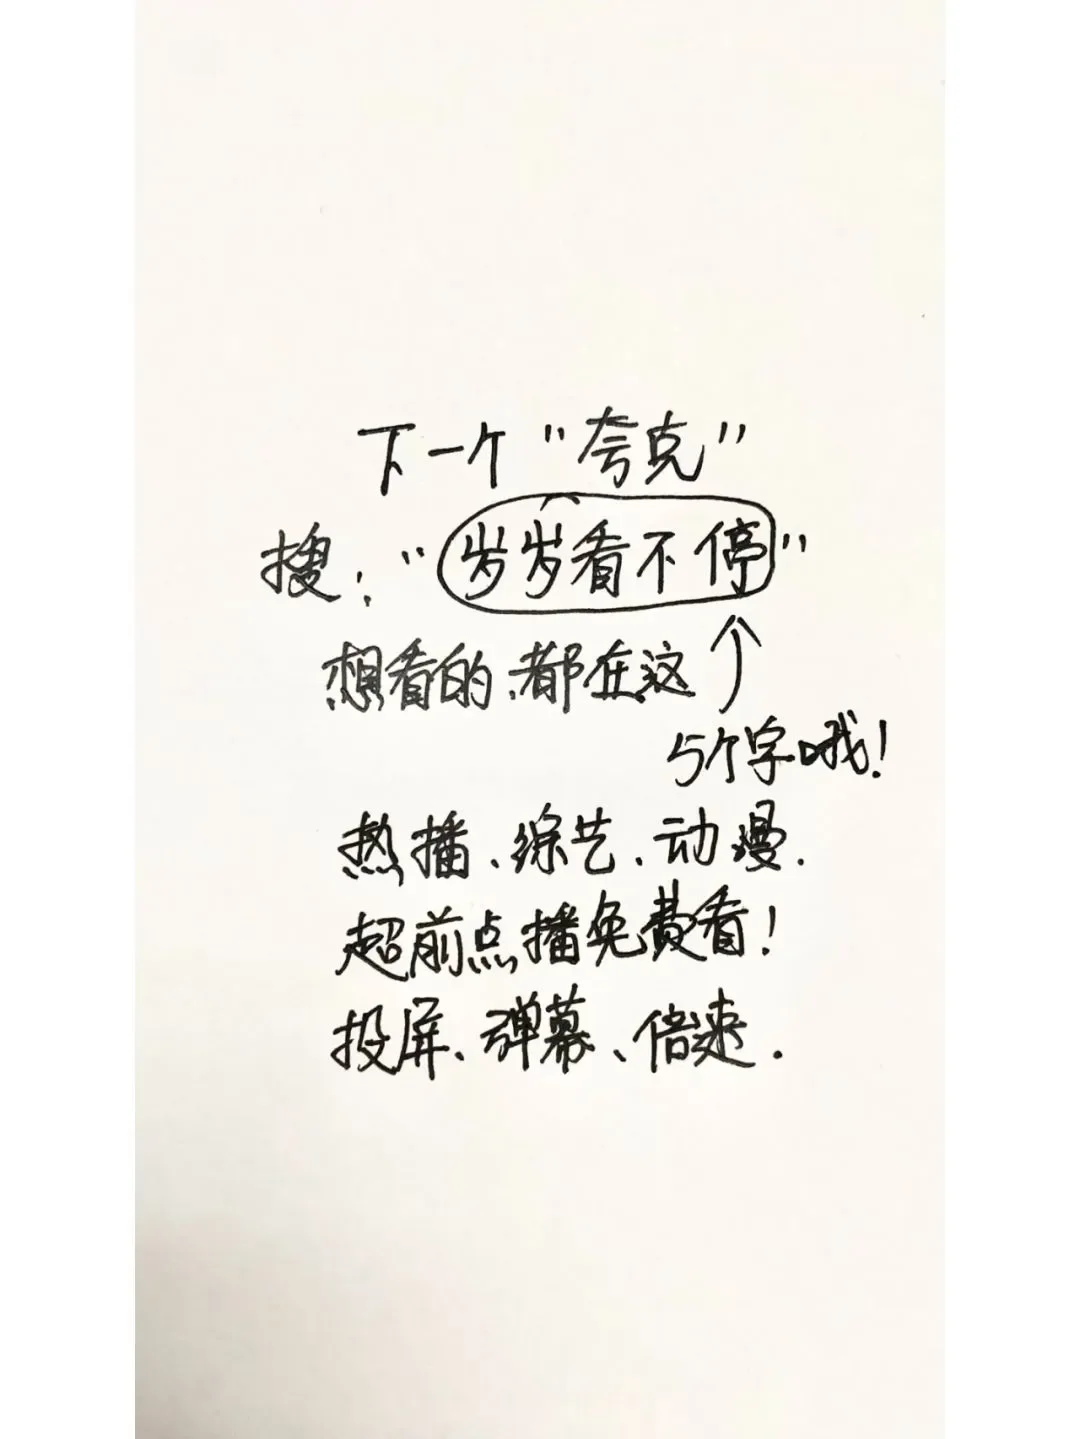 下一个"夸克"
搜:"岁岁看不停"
想看的、都在这
5个字哦!
热播、综艺、动漫.
超前点播免费看!
投屏、弹幕、倍速.